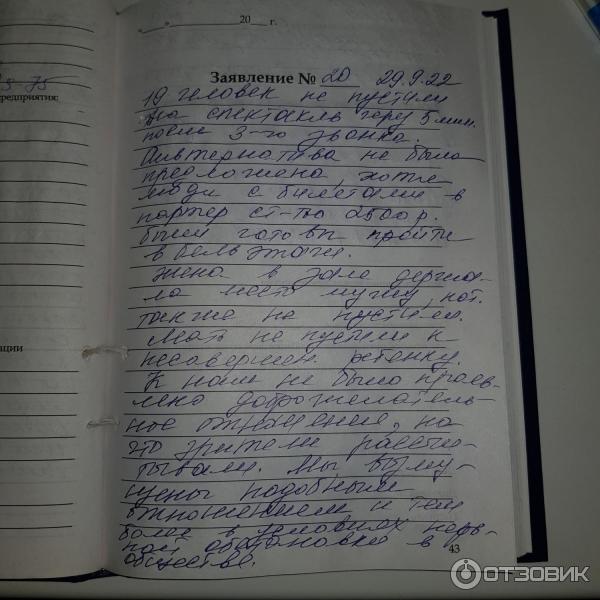 20 г.
Заявление № 20 29.9.22
19 человек не пустили
на спектакль через 5 мин.
после 3-го звонка.
Альтернатива не была
предложена, хотя
люди с билетами в
партер ст-ью 2800 р.
были готовы пройти
в бельэтаж.
Жена в зале держа-
ла место мужу, кот.
также не пустили.
Мать не пустили к
несовершен. ребенку.
К нам не было прояв-
лено доброжелатель-
ное отношение, на
что зрители рассчи-
тывали. Мы возму-
щены подобным
отношением и тем
более в условиях нерв-
ной обстановки в
обществе.
43
5 75
редприятия:
ции
ОТЗОВИК